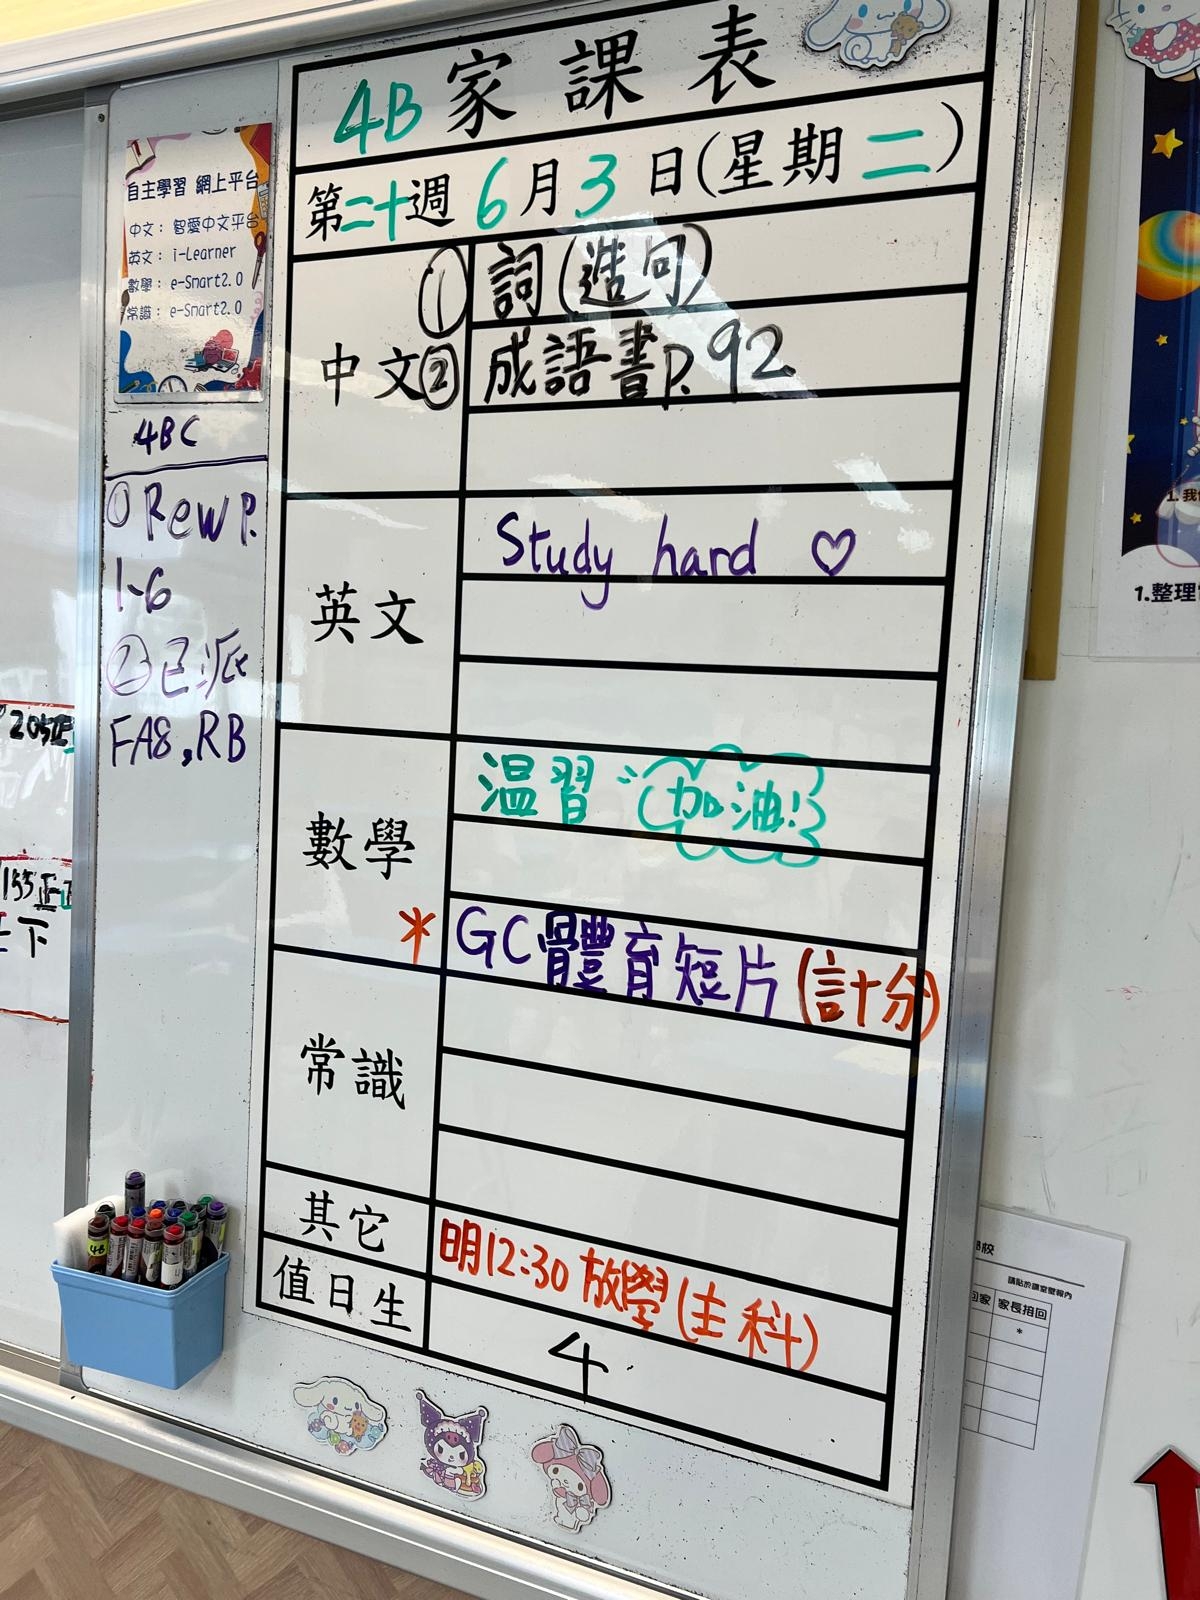 4B家課表
第二十週 6月3日(星期二)
自主學習 網上平台
中文：智愛中文平台
英文：i-Learner
數學：e-Smart2.0
常識：e-Smart2.0
4BC
① Rew P.
1-6
② 已派
FA8, RB
中文
① 詞(造句)
② 成語書p.92
英文
Study hard ♡
數學
溫習 加油!
* GC體育短片(計分)
常識
其它
明12:30放學(主科)
值日生
4
1.整理
家長指回